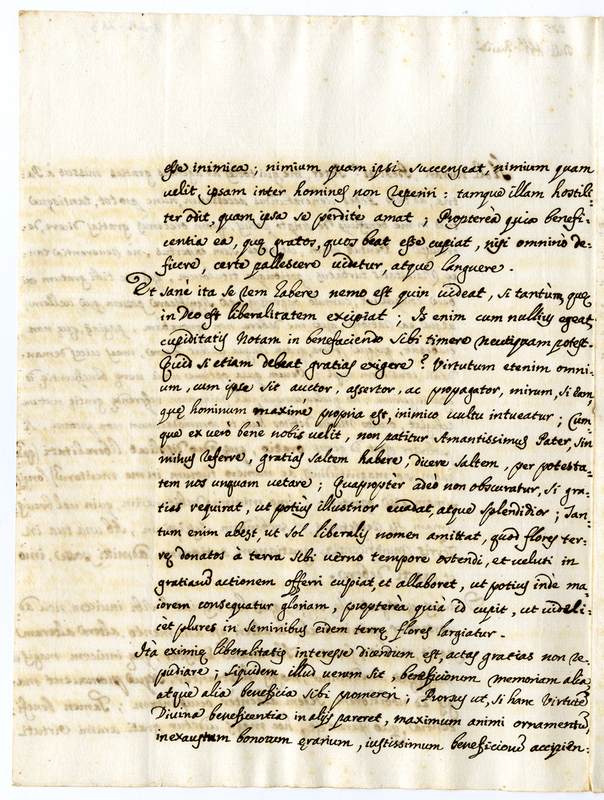 esse inimica; nimium quam ipsi succenseat, nimium quam
velit, ipsam inter homines non reperiri: tamque illam hostili-
ter odit, quam ipsa se perditè amat; Proptereà quia benefi-
centia ea, quę gratos, quos beat esse cupiat, nisi omninò de-
ficere, certe pallescere videtur, atque languere.
Et sanè ita se rem habere nemo est quin videat, si tantùm, quę
in Deo est liberalitatem excipiat; Is enim cum nullius egeat
cupiditatis notam in benefaciendo sibi timere neutiquam potest.
Quid si etiam debeat gratias exigere? Virtutum etenim omni-
um, cum ipse sit auctor, assertor, ac propagator, mirum, si eam
quę hominum maximè propria est, inimico vultu intueatur; Cum-
que ex verò benè nobis velit, non patitur Amantissimus Pater, sin
minus referre, gratias saltem habere, dicere saltem, per potesta-
tem nos unquam vetare; Quaproptèr adeò non obscuratur, si gra-
tias requirat, ut potiùs illustrior evadat, atque splendidior; Tan-
tum enim abest, ut Sol liberalis nomen amittat, quod flores ter-
rę donatos à terra sibi verno tempore ostendi, et veluti in
gratiarũ actionem offerri cupiat, et allaboret, ut potiùs inde ma-
iorem consequatur gloriam, proptereà quià id cupit, ut videli-
cèt plures in seminibus eidem terrę flores largiatur.
Ita eximię liberalitatis interesse dicendum est, actas gratias non re-
pudiare; siquidem illud verum sit, beneficiorum memoriam alia,
atque alia beneficia sibi promereri; Prorsus ut, si hanc Virtutẽ
Divina beneficentia in alijs pareret, maximum animi ornamentũ,
inexaustum bonorum ęrarium, iustissimum beneficiorũ accipien-